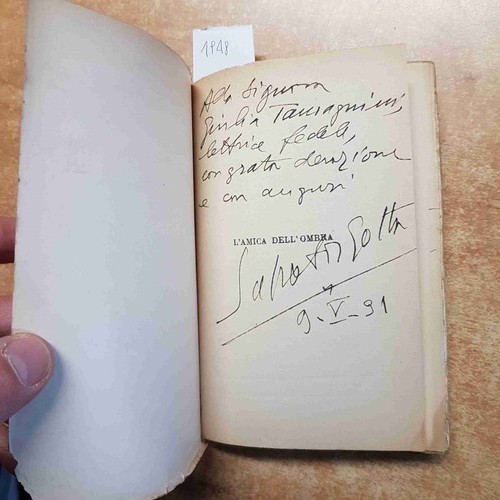 1948
Alla Signora
Giulia
lettrice fedele,
con grata devozione
e con auguri
L'AMICA DELL'OMBRA
Salvator Gotta
9-V-31